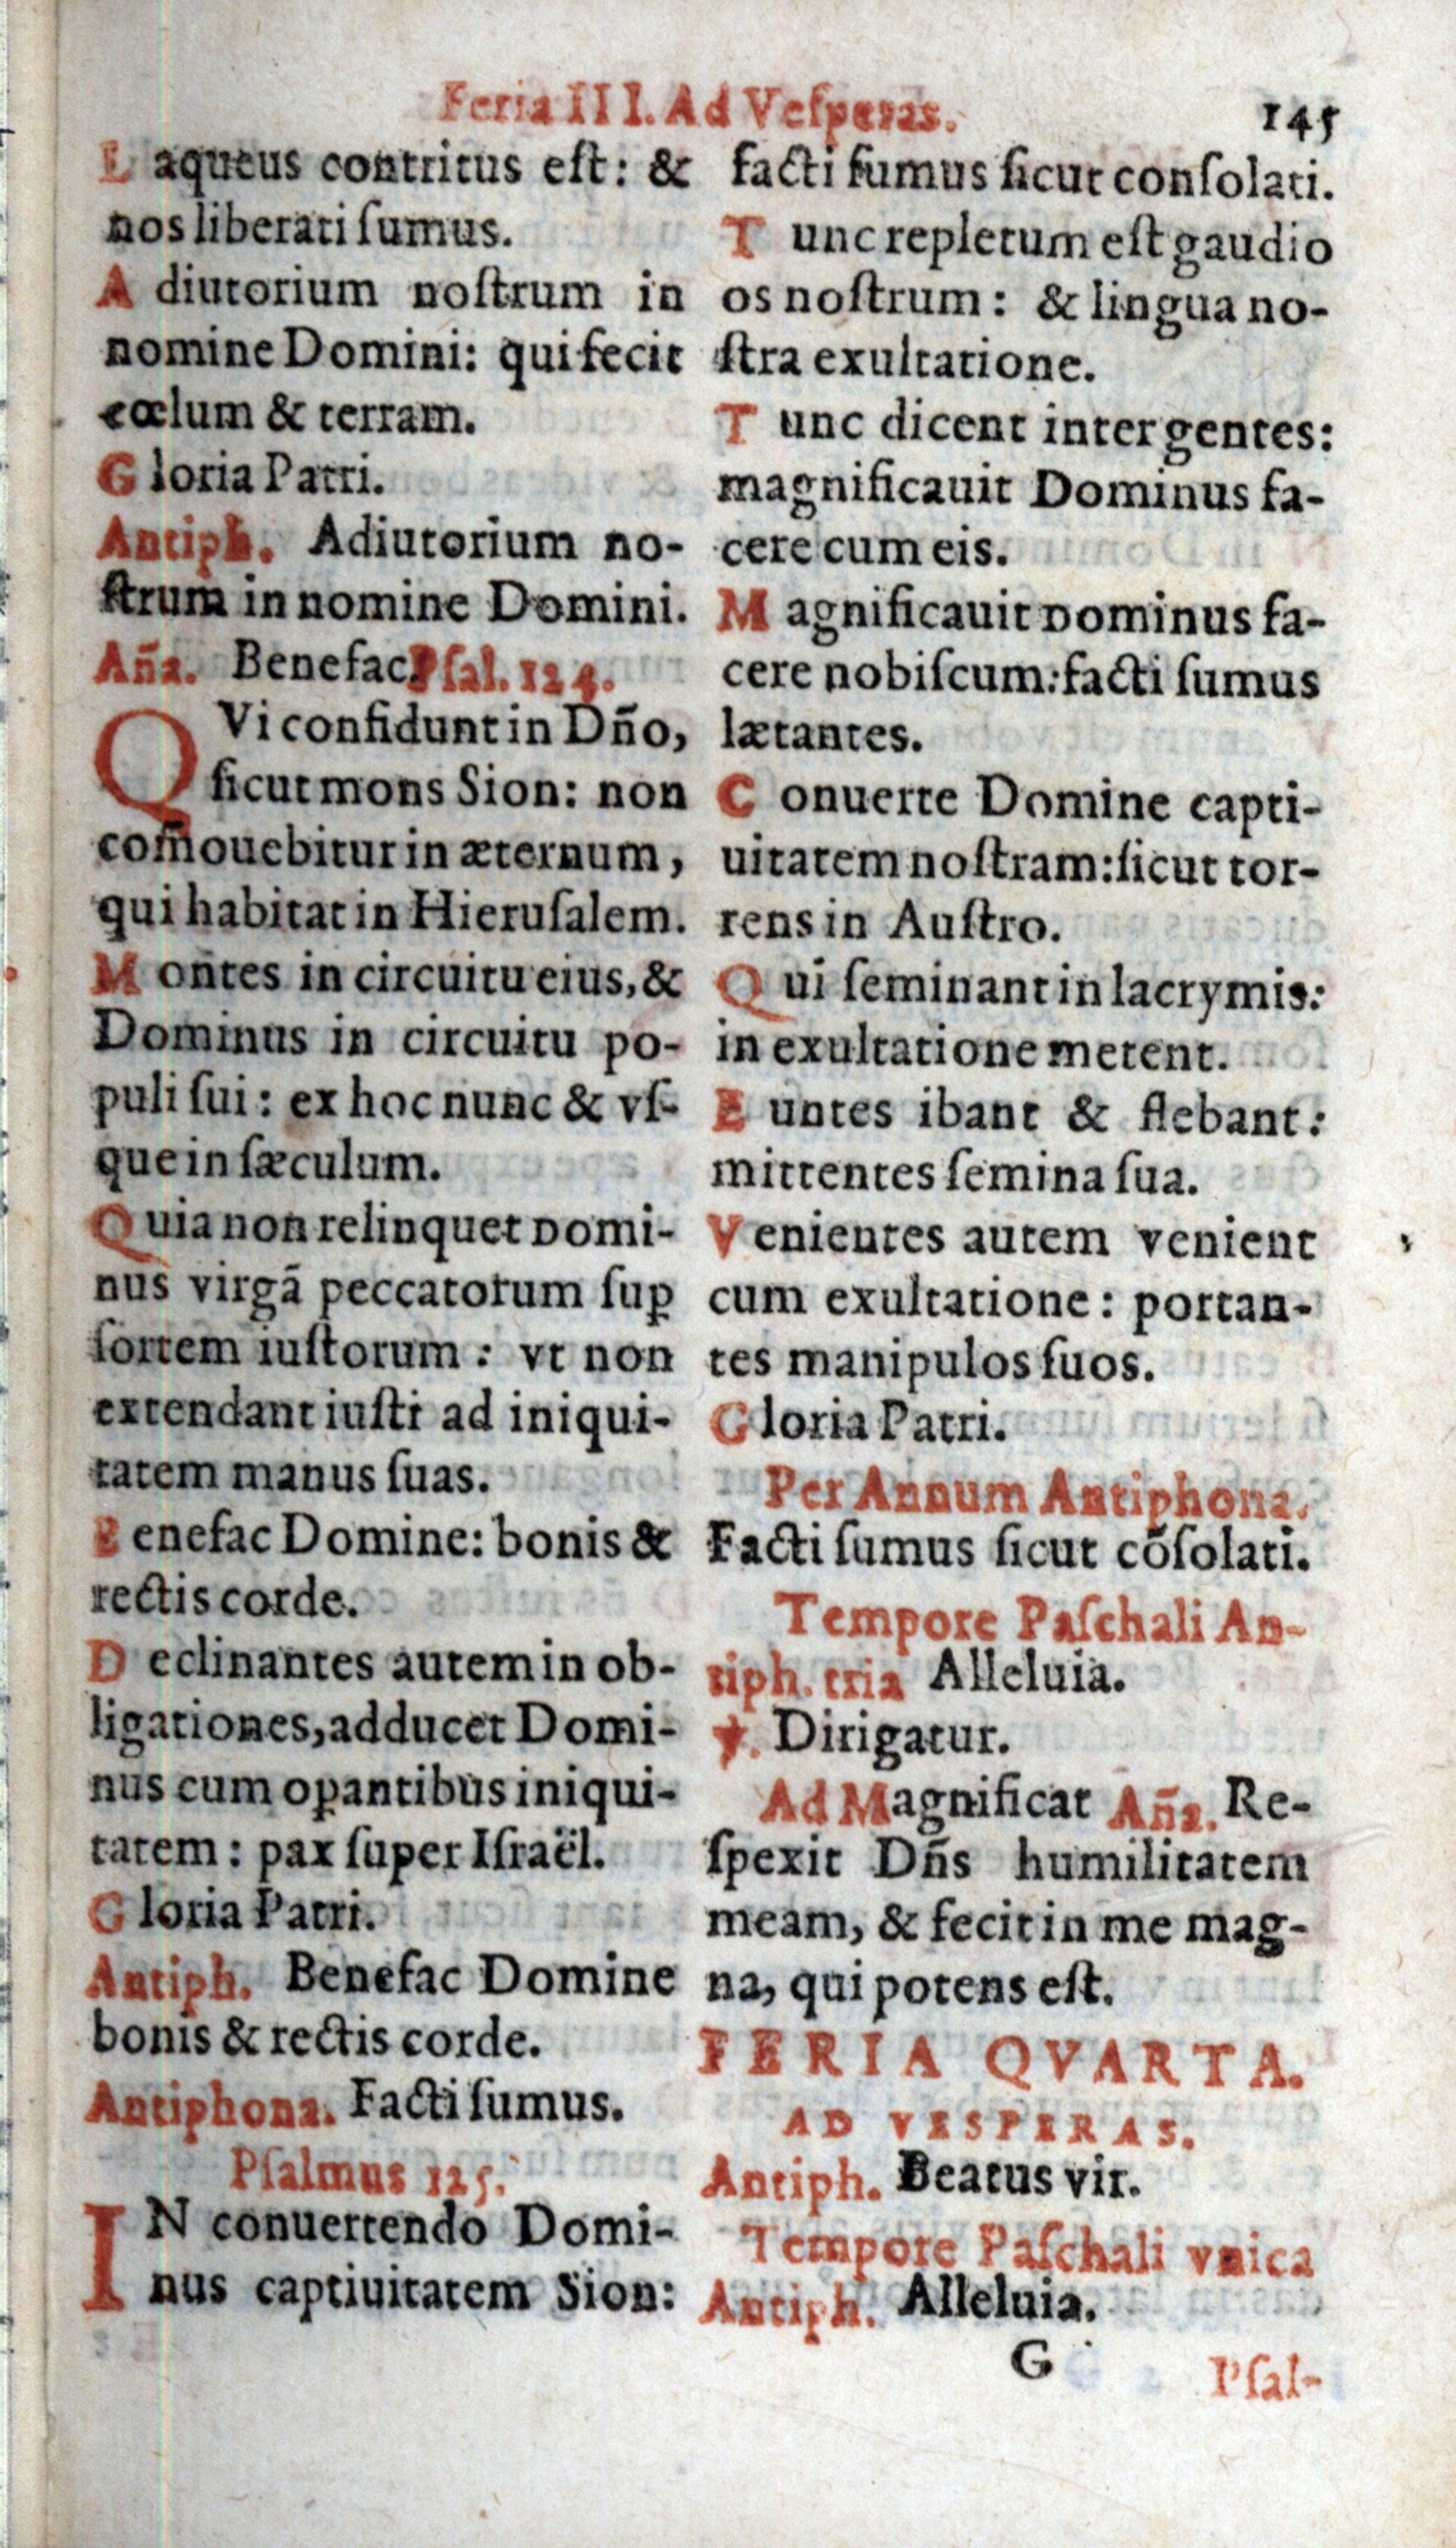 Feria III. Ad Veſperas. 145
Laqueus contritus eſt: &
nos liberati ſumus.
Adiutorium noſtrum in
nomine Domini: qui fecit
cœlum & terram.
Gloria Patri.
Antiph. Adiutorium no-
ſtrum in nomine Domini.
Añа. Benefac. Pſal. 124.
QVi confidunt in Dño,
ſicut mons Sion: non
com̃ouebitur in æternum,
qui habitat in Hieruſalem.
Montes in circuitu eius, &
Dominus in circuitu po-
puli ſui: ex hoc nunc & vſ-
que in ſæculum.
Quia non relinquet Domi-
nus virgã peccatorum ſuꝑ
ſortem iuſtorum: vt non
extendant iuſti ad iniqui-
tatem manus ſuas.
Benefac Domine: bonis &
rectis corde.
Declinantes autem in ob-
ligationes, adducet Domi-
nus cum oꝑantibus iniqui-
tatem: pax ſuper Iſraël.
Gloria Patri.
Antiph. Benefac Domine
bonis & rectis corde.
Antiphona. Facti ſumus.
Pſalmus 125.
IN conuertendo Domi-
nus captiuitatem Sion:
facti ſumus ſicut conſolati.
Tunc repletum eſt gaudio
os noſtrum: & lingua no-
ſtra exultatione.
Tunc dicent inter gentes:
magnificauit Dominus fa-
cere cum eis.
Magnificauit Dominus fa-
cere nobiſcum: facti ſumus
lætantes.
Conuerte Domine capti-
uitatem noſtram: ſicut tor-
rens in Auſtro.
Qui ſeminant in lacrymis:
in exultatione metent.
Euntes ibant & flebant:
mittentes ſemina ſua.
Venientes autem venient
cum exultatione: portan-
tes manipulos ſuos.
Gloria Patri.
Per Annum Antiphona.
Facti ſumus ſicut cõſolati.
Tempore Paſchali An-
tiph. tria Alleluia.
℣. Dirigatur.
Ad Magnificat Aña. Re-
ſpexit Dñs humilitatem
meam, & fecit in me mag-
na, qui potens eſt.
FERIA QVARTA.
AD VESPERAS.
Antiph. Beatus vir.
Tempore Paſchali vnica
Antiph. Alleluia.
G Pſal-